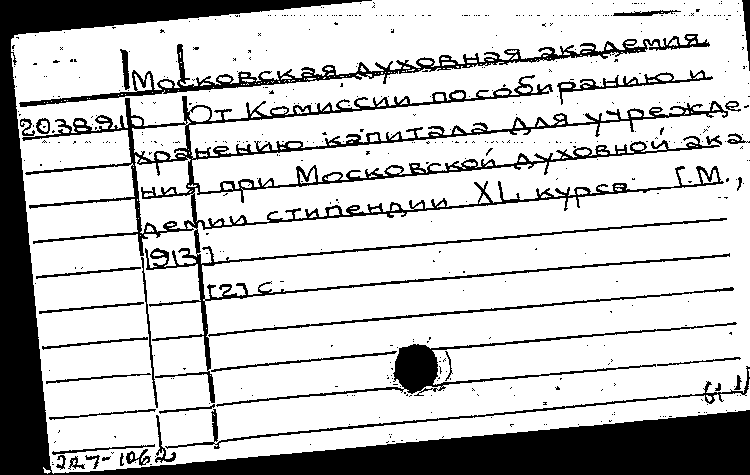 Московская духовная академия
20.38.9.10 От Комиссии по собиранию и
хранению капитала для учрежде-
ния при Московской духовной ака
демии стипендии XL курса. [М.,
1913].
[2] с.
227-1062